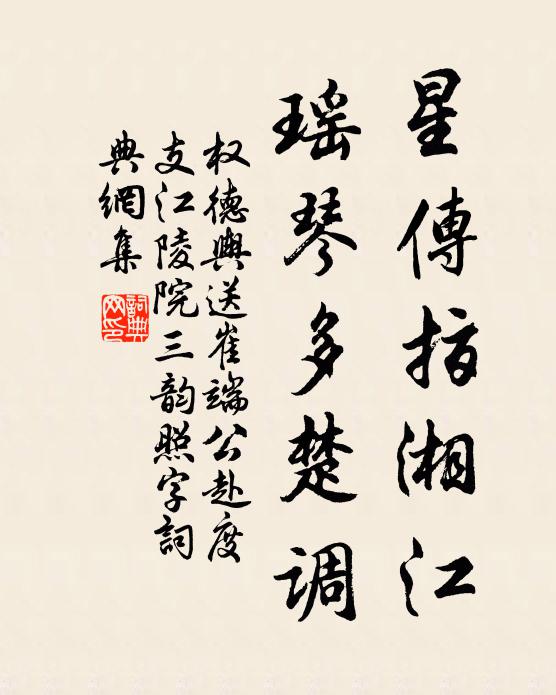 星傳指湘江
瑶琴多楚调
权德輿送崔端公赴度
支江陵院三韵照字詞
典網集
詞典
网印